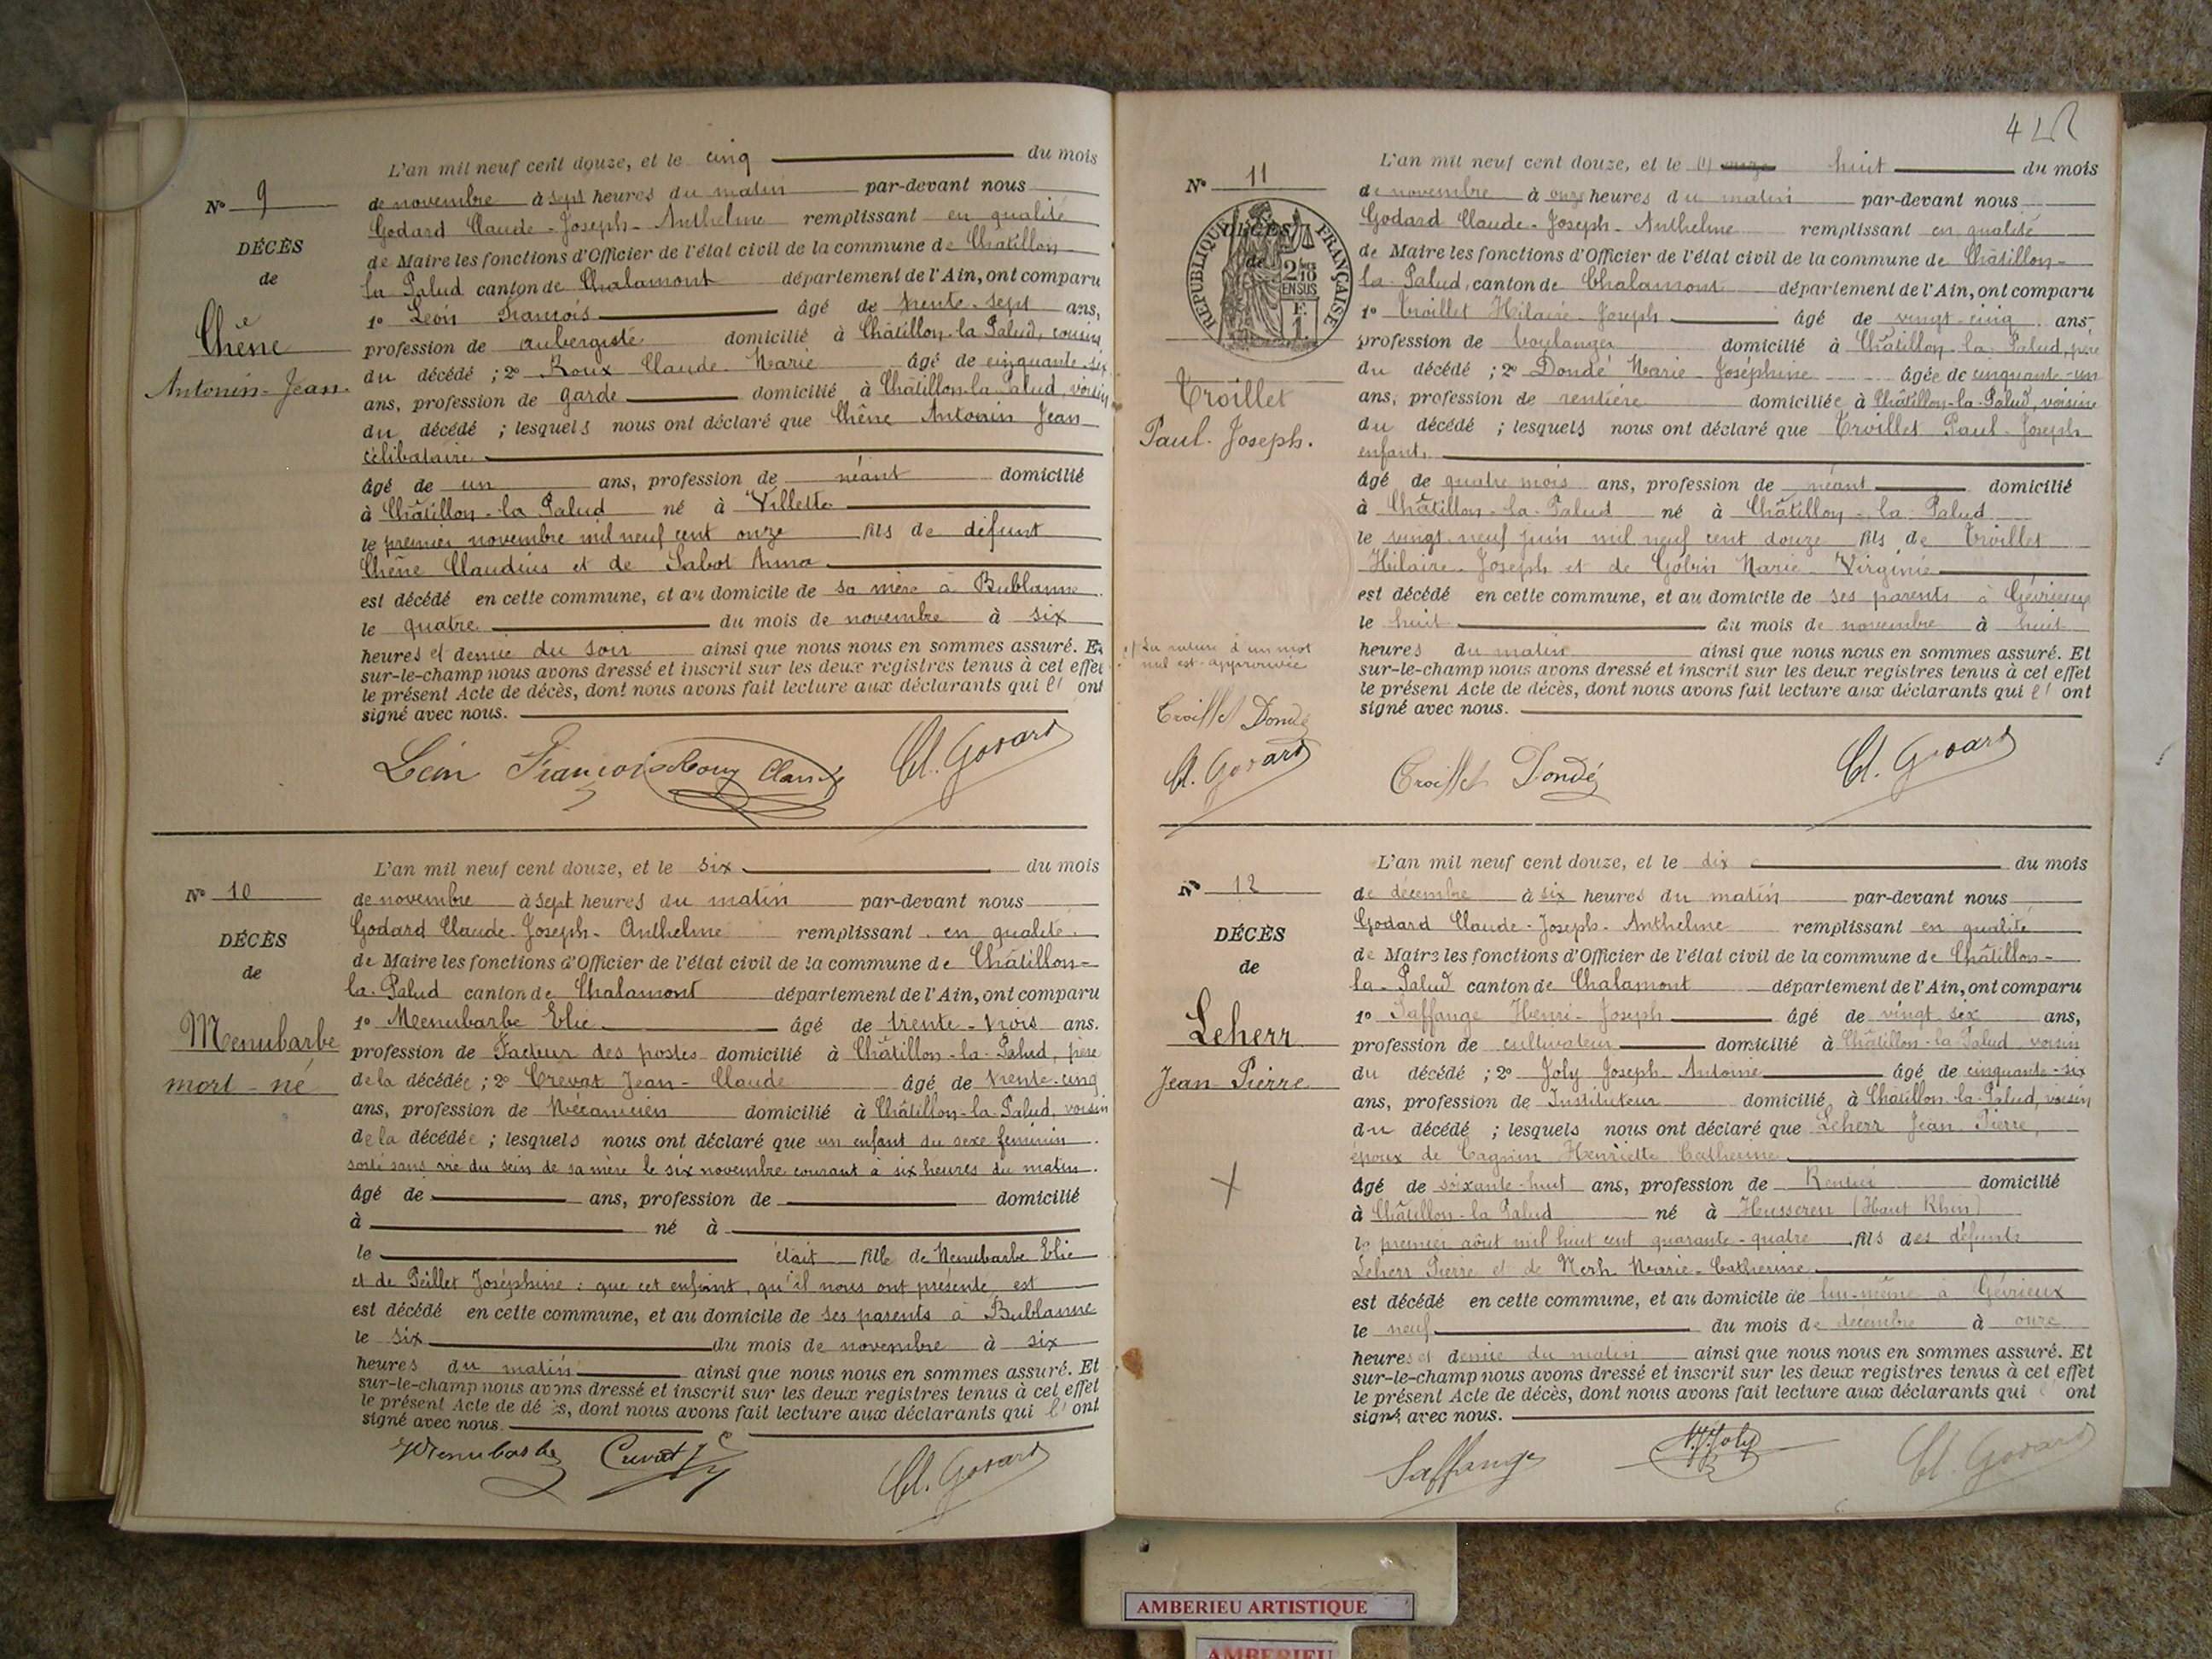 L'an mil neuf cent douze, et le cinq du mois
N° 9
de novembre à sept heures du matin par-devant nous
Godard Claude-Joseph-Anthelme remplissant en qualité
DÉCÈS
de Maire les fonctions d'Officier de l'état civil de la commune de Châtillon
de
la Palud canton de Chalamont département de l'Ain, ont comparu
1° Léon François âgé de trente-sept ans,
Chêne
profession de aubergiste domicilié à Châtillon-la Palud, cousin
Antonin-Jean
du décédé ; 2° Roux Claude-Marie âgé de cinquante-six
ans, profession de garde domicilié à Châtillon-la-Palud, voisin
du décédé ; lesquels nous ont déclaré que Chêne Antonin Jean
célibataire
âgé de un ans, profession de néant domicilié
à Châtillon-la Palud né à Villette
le premier novembre mil neuf cent onze fils de défunt
Chêne Claudius et de Sabot Anna
est décédé en cette commune, et au domicile de sa mère à Bublanne
le quatre du mois de novembre à six
heures et demie du soir ainsi que nous nous en sommes assuré. Et
sur-le-champ nous avons dressé et inscrit sur les deux registres tenus à cet effet
le présent Acte de décès, dont nous avons fait lecture aux déclarants qui l' ont
signé avec nous.
Léon François Roux Claude Cl. Godard
L'an mil neuf cent douze, et le six du mois
N° 10
de novembre à sept heures du matin par-devant nous
Godard Claude-Joseph-Anthelme remplissant en qualité
DÉCÈS
de Maire les fonctions d'Officier de l'état civil de la commune de Châtillon-
de
la-Palud canton de Chalamont département de l'Ain, ont comparu
1° Menubarbe Elie âgé de trente-trois ans.
Menubarbe
profession de Facteur des postes domicilié à Châtillon-la-Palud, père
mort-né
de la décédée ; 2° Crevat Jean-Claude âgé de trente-cinq
ans, profession de Mécanicien domicilié à Châtillon-la-Palud, voisin
de la décédée ; lesquels nous ont déclaré que un enfant du sexe féminin
sorti sans vie du sein de sa mère le six novembre courant à six heures du matin.
âgé de ans, profession de domicilié
à né à
le était fille de Menubarbe Elie
et de Peillet Joséphine : que cet enfant, qu'il nous ont présenté, est
est décédé en cette commune, et au domicile de ses parents à Bublanne
le six du mois de novembre à six
heures du matin ainsi que nous nous en sommes assuré. Et
sur-le-champ nous avons dressé et inscrit sur les deux registres tenus à cet effet
le présent Acte de décès, dont nous avons fait lecture aux déclarants qui l' ont
signé avec nous.
Menubarbe Cl. Godard
L'an mil neuf cent douze, et le onze huit du mois
N° 11
de novembre à onze heures du matin par-devant nous
Godard Claude-Joseph-Anthelme remplissant en qualité
RÉPUBLIQUE FRANÇAISE
DÉCÈS
de
2/10 EN SUS
F. 1
de Maire les fonctions d'Officier de l'état civil de la commune de Châtillon-
la-Palud, canton de Chalamont département de l'Ain, ont comparu
1° Troillet Hilaire-Joseph âgé de vingt-cinq ans,
profession de boulanger domicilié à Châtillon-la-Palud, père
Troillet
Paul-Joseph.
du décédé ; 2° Dondé Marie-Joséphine âgée de cinquante-un
ans, profession de rentière domiciliée à Châtillon-la-Palud, voisine
du décédé ; lesquels nous ont déclaré que Troillet Paul-Joseph
enfant
âgé de quatre mois ans, profession de néant domicilié
à Châtillon-la-Palud né à Châtillon-la-Palud
le vingt-neuf juin mil neuf cent douze fils de Troillet
Hilaire-Joseph et de Gobin Marie-Virginie
est décédé en cette commune, et au domicile de ses parents à Gévrieux
le huit du mois de novembre à huit
heures du matin ainsi que nous nous en sommes assuré. Et
La rature d'un mot
nul est approuvée
sur-le-champ nous avons dressé et inscrit sur les deux registres tenus à cet effet
le présent Acte de décès, dont nous avons fait lecture aux déclarants qui l' ont
signé avec nous.
Troillet Dondé
Cl. Godard
Troillet Dondé Cl. Godard
L'an mil neuf cent douze, et le dix du mois
N° 12
de décembre à six heures du matin par-devant nous
Godard Claude-Joseph-Anthelme remplissant en qualité
DÉCÈS
de Maire les fonctions d'Officier de l'état civil de la commune de Châtillon-
de
la-Palud canton de Chalamont département de l'Ain, ont comparu
1° Saffange Henri-Joseph âgé de vingt six ans,
Leherr
profession de cultivateur domicilié à Châtillon-la Palud voisin
Jean-Pierre
du décédé ; 2° Joly Joseph Antoine âgé de cinquante-six
ans, profession de Instituteur domicilié à Châtillon-la-Palud, voisin
du décédé ; lesquels nous ont déclaré que Leherr Jean Pierre,
époux de Cagnin Henriette Catherine
âgé de soixante-huit ans, profession de Rentier domicilié
à Châtillon-la Palud né à Husseren (Haut Rhin)
le premier août mil huit cent quarante-quatre fils des défunts
Leherr Pierre et de Merh Marie-Catherine
est décédé en cette commune, et au domicile de lui-même à Gévrieux
le neuf du mois de décembre à onze
heures et demie du matin ainsi que nous nous en sommes assuré. Et
sur-le-champ nous avons dressé et inscrit sur les deux registres tenus à cet effet
le présent Acte de décès, dont nous avons fait lecture aux déclarants qui ont
signé avec nous.
Saffange Joly Cl. Godard
AMBERIEU ARTISTIQUE
AMBERIEU